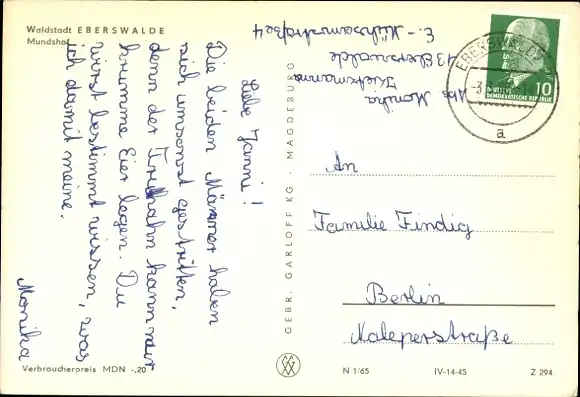 Waldstadt EBERSWALDE
Mundshof
Liebe Janni!
Die beiden Männer haben
sich umsonst gestritten,
denn der Truthahn kann nur
krumme Eier legen. Du
wirst bestimmt wissen, was
ich damit meine.
Monika
Verbraucherpreis MDN -,20
GEBR. GARLOFF KG · MAGDEBURG
Abs. Monika
43 Eberswalde
E.-Mühsamstraße 4
EBERSWALDE
a
10
DEUTSCHE
DEMOKRATISCHE REPUBLIK
An
Familie Findig
Berlin
Kaleperstraße
N 1/65
IV-14-45
Z 294